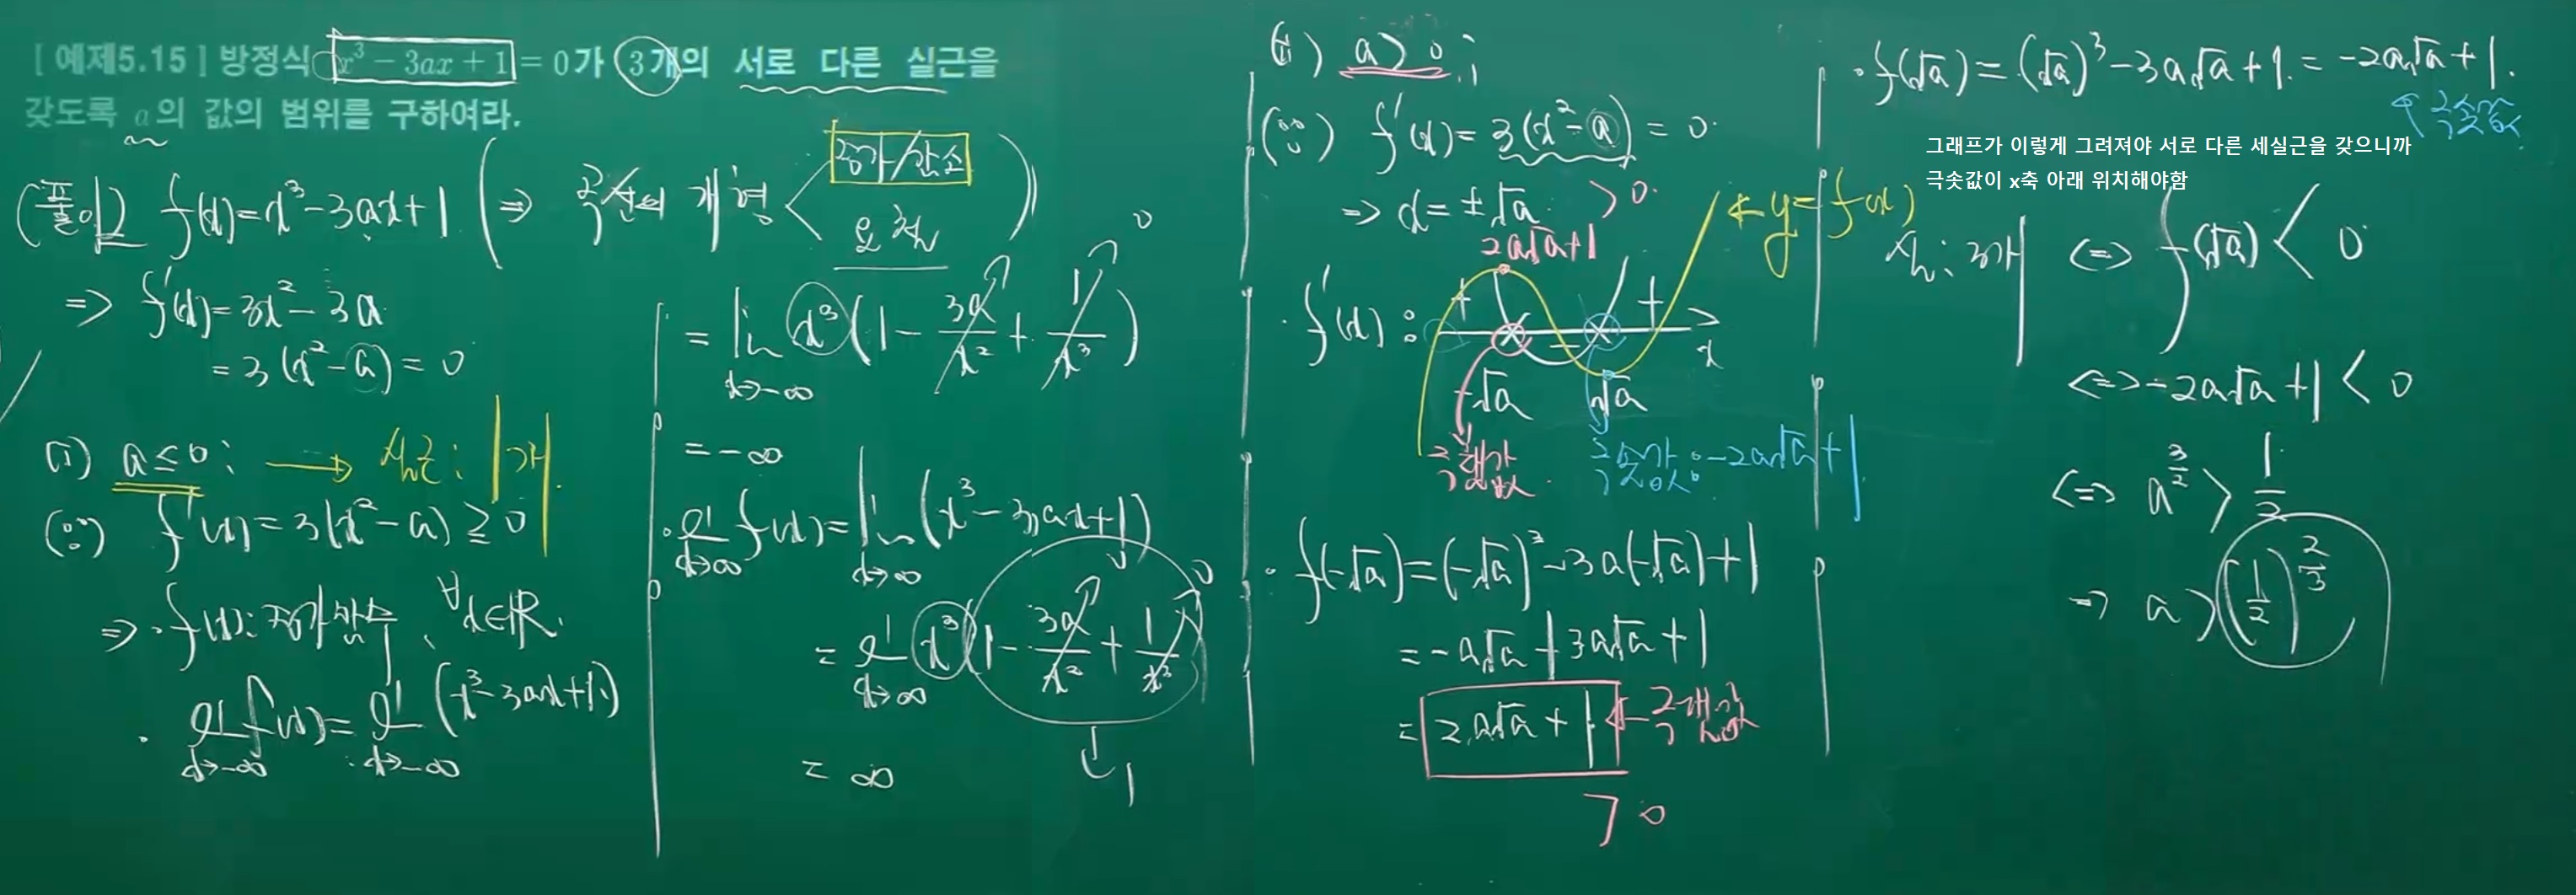 [ 예제5.15 ] 방정식 x³ − 3ax + 1 = 0가 3개의 서로 다른 실근을
갖도록 a의 값의 범위를 구하여라.
(풀이) f(x)=x³-3ax+1 (⇒ 곡선의 개형 < 증가/감소
요철 )
⇒ f'(x)=3x²-3a
=3(x²-a)=0
(i) a≤0; → 실근: 1개.
(∵) f'(x)=3(x²-a)≥0
⇒ · f(x): 증가함수, ∀x∈ℝ.
· lim x→-∞ f(x)= lim x→-∞ (x³-3ax+1)
= lim x→-∞ x³(1- 3a/x² + 1/x³)
0
= -∞
· lim x→∞ f(x)= lim x→∞ (x³-3ax+1)
= lim x→∞ x³(1- 3a/x² + 1/x³)
0 0
↓ 1
= ∞
(ii) a>0;
(∵) f'(x)=3(x²-a)=0
⇒ x=±√a >0
2a√a+1
← y=f(x)
· f'(x): + − + x
-√a √a
극댓값 극솟값: -2a√a+1
· f(-√a)=(-√a)³-3a(-√a)+1
=-a√a+3a√a+1
= 2a√a+1 ← 극댓값
> 0
· f(√a)=(√a)³-3a√a+1=-2a√a+1.
↑ 극솟값
그래프가 이렇게 그려져야 서로 다른 세실근을 갖으니까
극솟값이 x축 아래 위치해야함
실: 3개 ⇔ f(√a)<0
⇔ -2a√a+1<0
⇔ a^(3/2) > 1/2
⇒ a > (1/2)^(2/3)